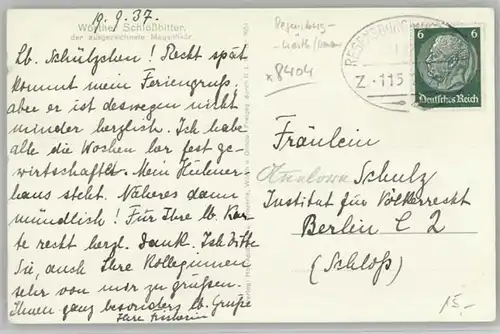 9.9.37.
Wörther Schloßbitter,
der ausgezeichnete Magenlikör.
Lb. Schützchen! Recht spät
kommt mein Feriengruß,
aber er ist deswegen nicht
minder herzlich. Ich habe
alle die Wochen her fest ge-
wirtschaftet. Mein Hühner-
haus steht. Näheres dann
mündlich! Für Ihre lb. Kar-
te recht herzl. Dank. Ich bitte
Sie, auch Ihre Kolleginnen
sehr von mir zu grüßen.
Ihnen ganz besonders lb. Grüße
Ihre
Regensburg-
Wörth/Donau
x8404
REGENSBURG
Z. 115
6 6
Deutsches Reich
Fräulein
Schulz
Institut für Völkerrecht
Berlin C 2
(Schloß)
15.-